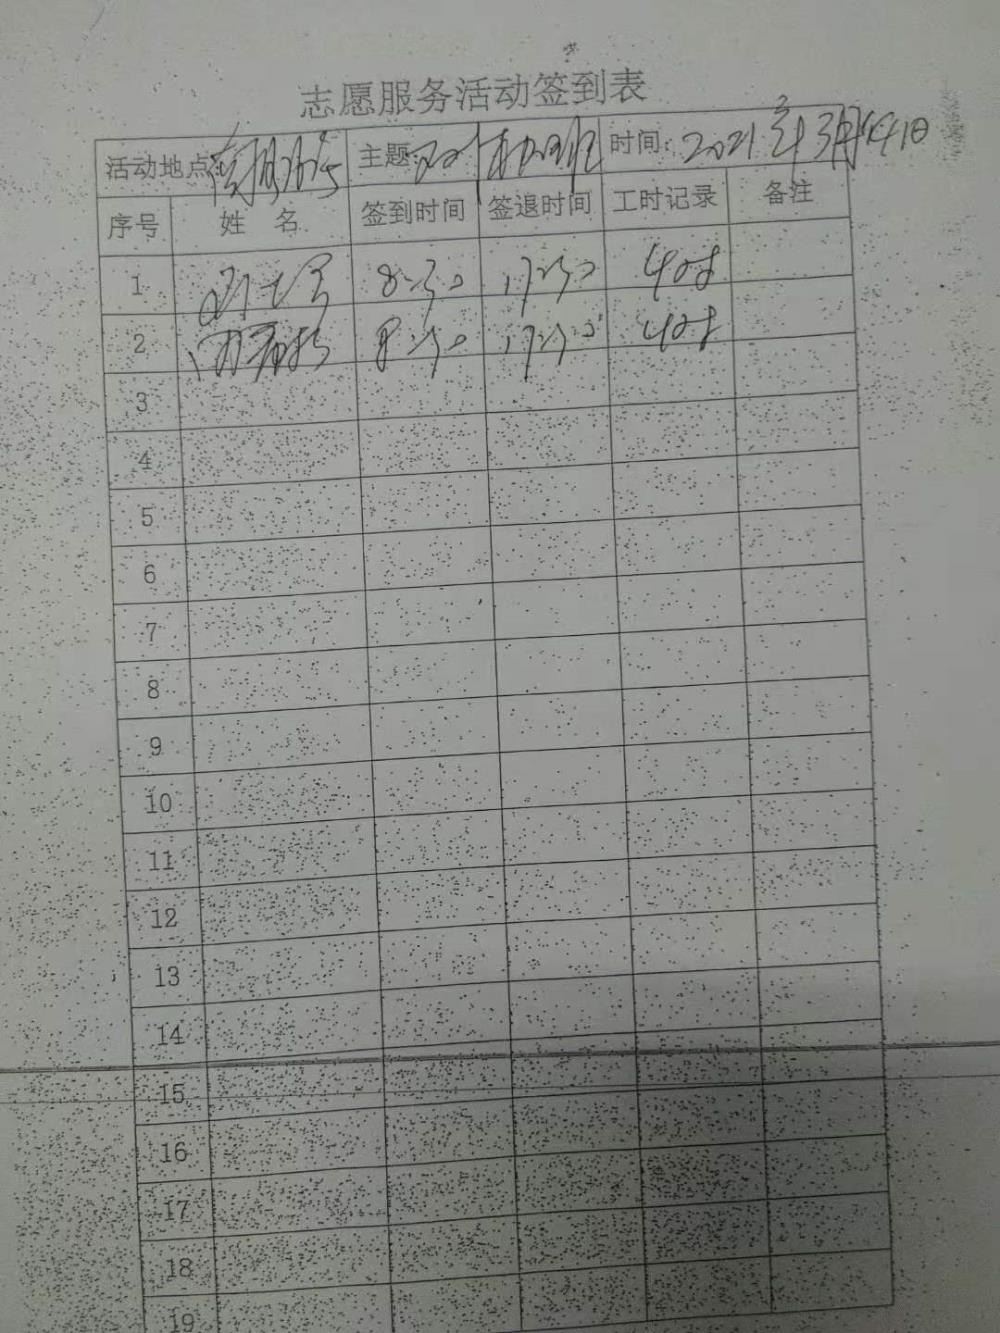 志愿服务活动签到表
活动地点 主题: 时间: 2021年3月4日
序号 姓 名 签到时间 签退时间 工时记录 备注
1 8:30 17:30 4小时
2 8:30 17:30 4小时
3
4
5
6
7
8
9
10
11
12
13
14
15
16
17
18
19